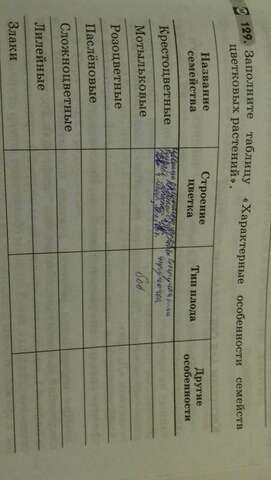 129. Заполните таблицу «Характерные особенности семейств
цветковых растений».
Название семейства
Строение цветка
Тип плода
Другие особенности
Крестоцветные
Мотыльковые
боб
Розоцветные
Паслёновые
Сложноцветные
Лилейные
Злаки